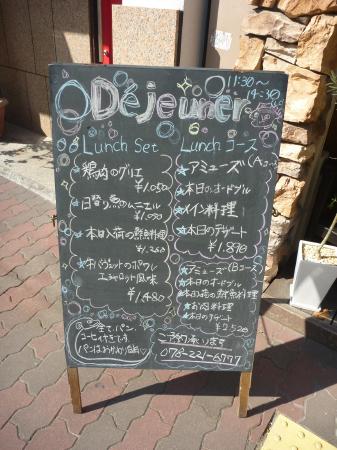 Déjeuner
11:30～
14:30
Lunch Set
鶏肉のグリエ
¥1,050
日替り魚のムニエル
¥1,050
本日入荷の鮮魚料理
¥1,260
牛バヴェットのポワレ
エシャロット風味
¥1,480
全て、パン、
コーヒー付きです
パンはおかわり自由
Lunch コース
アミューズ (Aコース)
本日のオードブル
メイン料理
本日のデザート
¥1,870
アミューズ (Bコース)
本日のオードブル
本日入荷の鮮魚料理
お肉料理
本日のデザート
¥2,520
ご予約承ります
078-221-6777